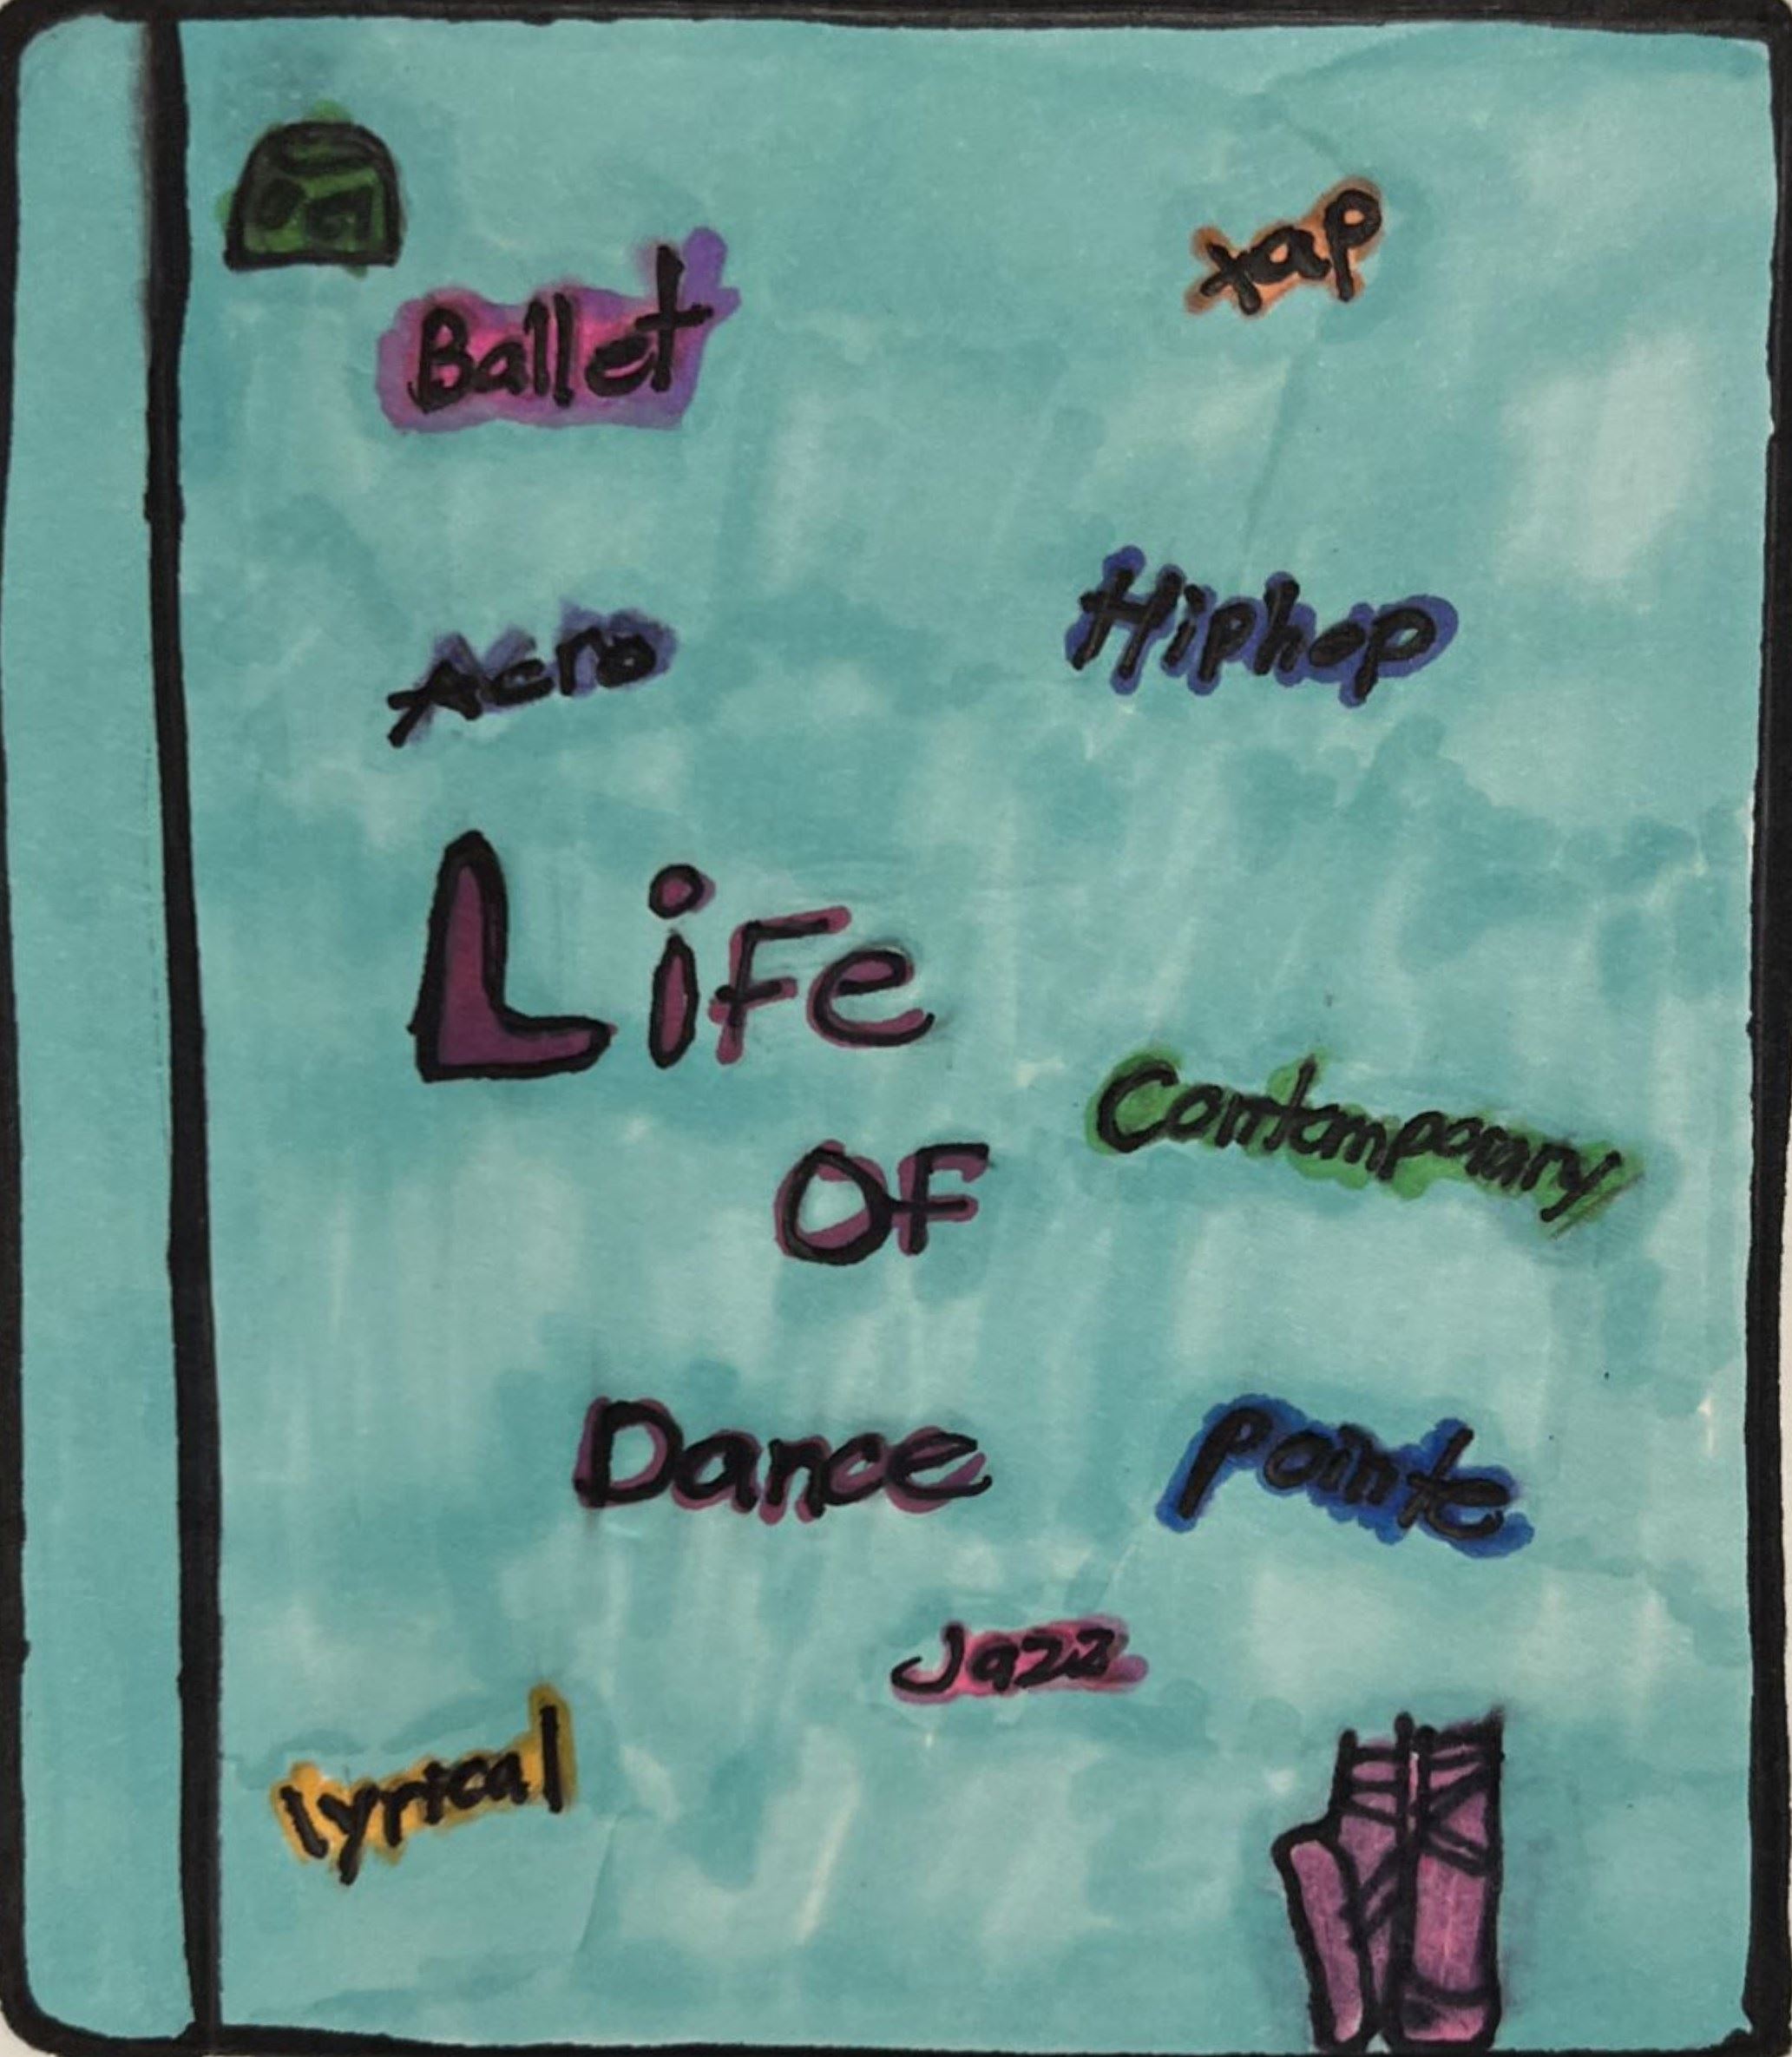 Ballet
tap
Acro
Hiphop
Life
Contemporary
OF
Dance
pointe
Jazz
lyrical